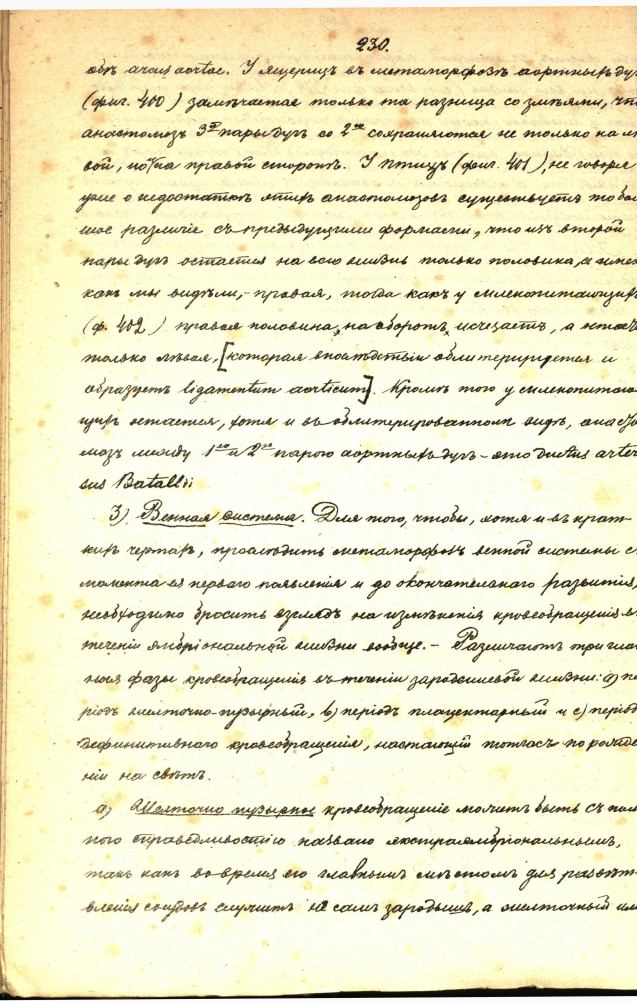 230.
объ arcus aortae. У ящерицъ въ метаморфозѣ аортныхъ дуг
(фиг. 400) замѣчается только та разница со змѣями, что
анастомозъ 3ей пары дугъ со 2ою сохраняются не только на лѣ
вой, но и на правой сторонѣ. У птицъ (фиг. 401), не говоря
уже о недостаткѣ этихъ анастомозовъ существуетъ то боль
шое различіе съ предыдущими формами, что изъ второй
пары дугъ остается на всю жизнь только половина, а имен
какъ мы видѣли, - правая, тогда какъ у млекопитающихъ
(ф. 402) правая половина, на оборотъ, исчезаетъ, а остает
только лѣвая, [которая впослѣдствіи облитерируется и
образуетъ ligamentum aorticum]. Кромѣ того у млекопитаю
щихъ остается, хотя и въ облитерированномъ видѣ, анасто
мозъ между 1ою и 2ою парою аортныхъ дугъ - это ductus arter
sus Botalli
3) Венная система. Для того, чтобы, хотя и въ крат
кихъ чертахъ, прослѣдить метаморфозъ венной системы съ
момента ея перваго появленія и до окончательнаго развитія,
необходимо бросить взглядъ на измѣненія кровеобращенія въ
теченіи эмбріональной жизни вообще. - Различаютъ три глав
ныя фазы кровеобращенія въ теченіи зародышевой жизни: a) пе
ріодъ желточно-пузырный, b) періодъ плацентарный и c) періодъ
дефинитивнаго кровеобращенія, настающій тотчасъ по рожде
ніи на свѣтъ.
a) Желточно пузырное кровеобращеніе можетъ быть съ пол
ною справедливостію названо экстраэмбріональнымъ,
такъ какъ во время его главнымъ мѣстомъ для развѣт
вленія сосудовъ служитъ не самъ зародышъ, а желточный или